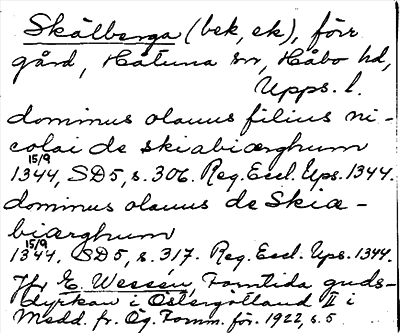 Skälberga (bek, ek), förr
gård, Håtuna sn, Håbo hd,
Upps. l.
dominus olauus filius ni-
colai de skiabiærghum
15/9
1344, SD 5, s. 306. Reg. Eccl. Ups. 1344.
dominus olauus de Skiæ-
biærghum
15/9
1344, SD 5, s. 317. Reg. Eccl. Ups. 1344.
Jfr E. Wessén, Forntida guds-
dyrkan i Östergötland II i
Medd. fr. Ög. Fornm. för. 1922, s. 5